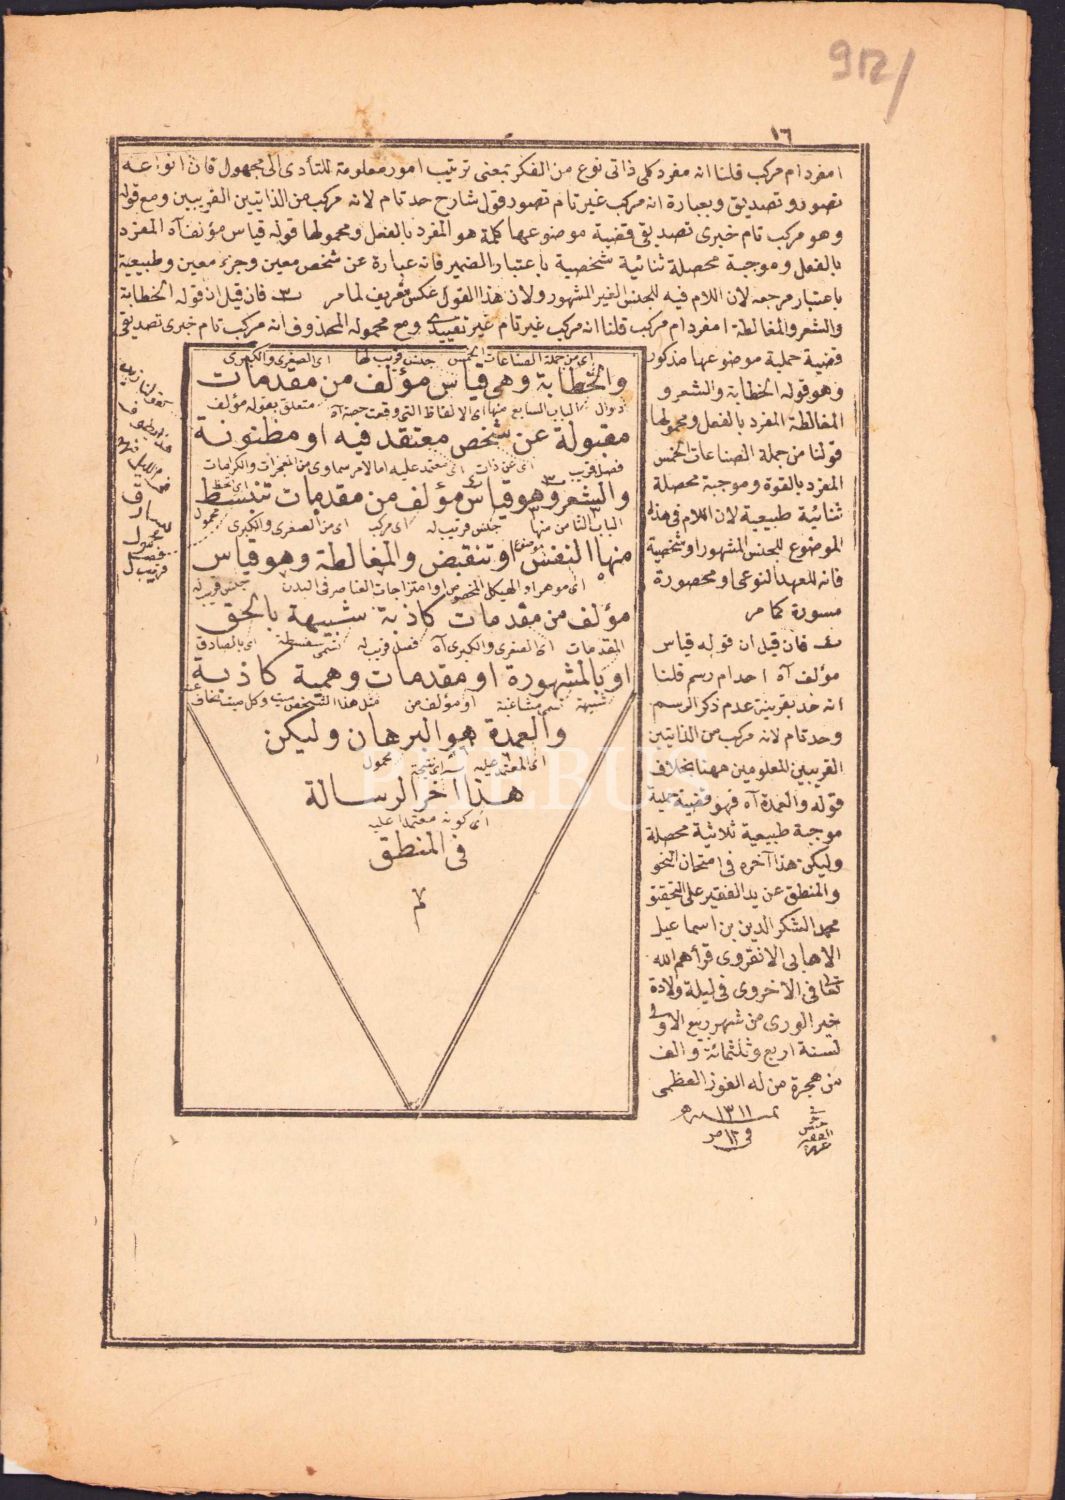 912/
١٦
امفرد ام مركب قلنا انه مفرد كلى ذاتى نوع من الفكر بمعنى ترتيب امور معلومة للتأدى الى مجهول فان انواعه
تصور و تصديق وبعبارة انه مركب غير تام تصور قول شارح حد تام لانه مركب من الذاتيين القريبين ومع قوله
وهو مركب تام خبرى تصديقى قضية موضوعها كلمة هو المفرد بالفعل ومحمولها قوله قياس مؤلف آه المفرد
بالفعل وموجبة محصلة ثنائية شخصية باعتبار الضمير فانه عبارة عن شخص معين وجزء معين وطبيعية
باعتبار مرجعه لان اللام فيه للجنس الغير المشهور ولان هذا القول عكس تعريف لمامر فان قيل ان قوله الخطابة
والشعر والمغالطة امفرد ام مركب قلنا انه مركب غير تام غير تقييدى ومع محموله المحذوف انه مركب تام خبرى تصديقى
قضية حملية موضوعها مذكور
وهو قوله الخطابة والشعر و
المغالطة المفرد بالفعل ومحمولها
قولنا من جملة الصناعات الخمس
المفرد بالقوة وموجبة محصلة
ثنائية طبيعية لان اللام فى هذا
الموضوع للجنس المشهور او شخصية
فانه للعهد النوعى او محصورة
مسورة كما مر
فان قيل ان قوله قياس
مؤلف آه احد ام رسم قلنا
انه حد بقرينة عدم ذكر الرسم
وحد تام لانه مركب من الذاتيين
القريبين المعلومين ههنا بخلاف
قوله والعمدة آه فهو قضية حملية
موجبة طبيعية ثلاثية محصلة
وليكن هذا آخره فى امتحان النحو
والمنطق عن يد الفقير على التحقيق
محمد الشكر الدين بن اسماعيل
الانقروى قرأهم الله
تعالى فى الاخروى فى ليلة ولادة
خير الورى من شهر ربيع الاول
لسنة اربع وثلثمائة والف
من هجرة من له الفوز العظمى
١٣١١
فى ١٢
اى من جملة الصناعات الخمس جنس قريب لها اى الصغرى والكبرى
والخطابة وهى قياس مؤلف من مقدمات
الباب السابع منها اى الالفاظ التى وقعت حصة آه متعلق بقوله مؤلف
مقبولة عن شخص معتقد فيه او مظنونة
فصل قريب اى عن ذات اى معتمد عليه اما لامر سماوى من المعجزات والكرامات
والشعر وهو قياس مؤلف من مقدمات تنبسط
الباب الثامن منها جنس قريب له اى مركب اى من الصغرى والكبرى محمول
منها النفس او تنقبض والمغالطة وهو قياس
اى هو هر او الهيكل المخصوص او امتزاجات العناصر فى البدن جنس قريب له
مؤلف من مقدمات كاذبة شبيهة بالحق
المقدمات اى الصغرى والكبرى آه فصل قريب له تسمى سفسطة اى بالصادق
او بالمشهورة او مقدمات وهمية كاذبة
شبيهة تسمى مشاغبة او مؤلف من مثل هذا الشخص ميت وكل ميت يخاف عنه
والعمدة هو البرهان وليكن
اى المعتمد عليه اى نتيجة محمول
هذا آخر الرسالة
اى كونه معتمدا عليه
فى المنطق
م
PHEBUS